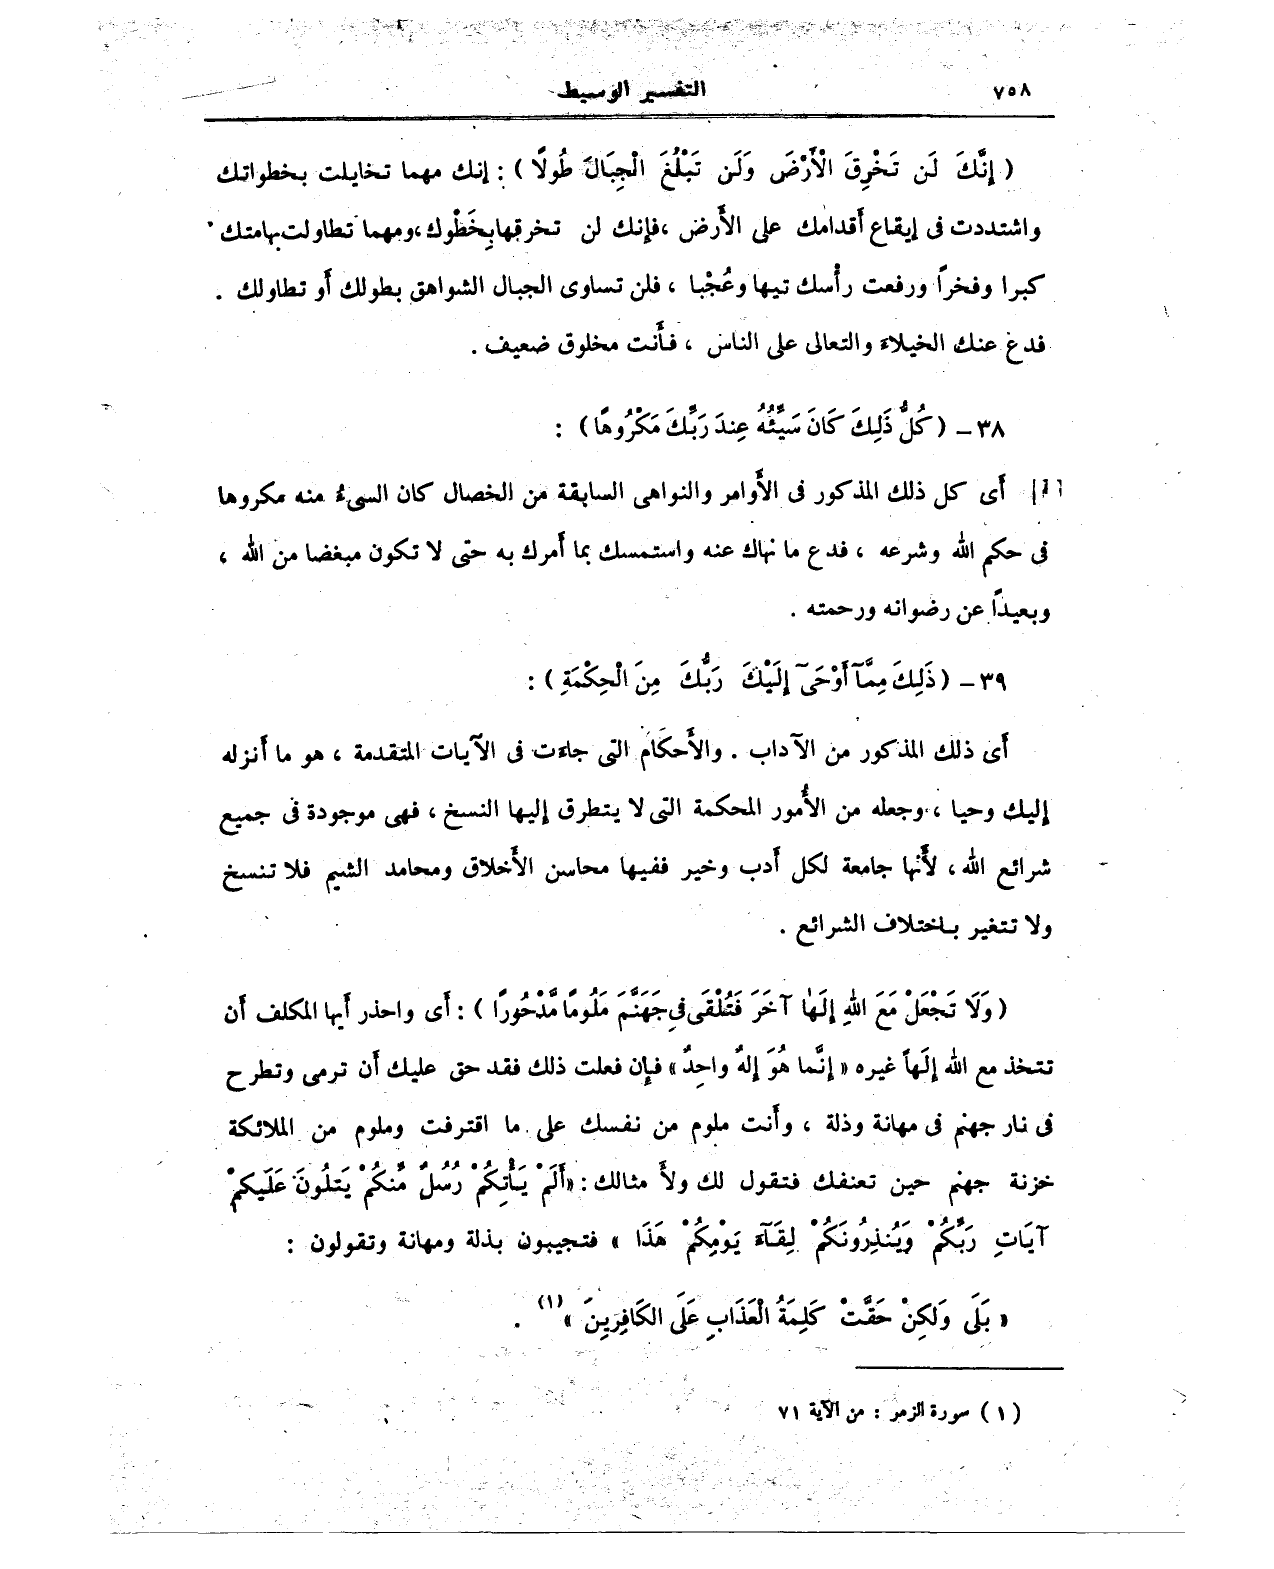 ٧٥٨
التفسير الوسيط
( إِنَّكَ لَن تَخْرِقَ الْأَرْضَ وَلَن تَبْلُغَ الْجِبَالَ طُولًا ) : إنك مهما تخايلت بخطواتك
واشتددت فى إيقاع أقدامك على الأرض ،فإنك لن تخرقها بِخَطْوِك ،ومهما تطاولت بهامتك
كبرا وفخراً ورفعت رأسك تيها وعُجْبا ، فلن تساوى الجبال الشواهق بطولك أو تطاولك .
فدع عنك الخيلاء والتعالى على الناس ، فأنت مخلوق ضعيف .
٣٨ – ( كُلُّ ذَلِكَ كَانَ سَيِّئُهُ عِندَ رَبِّكَ مَكْرُوهًا ) :
أى كل ذلك المذكور فى الأوامر والنواهى السابقة من الخصال كان السىءُ منه مكروها
فى حكم الله وشرعه ، فدع ما نهاك عنه واستمسك بما أمرك به حتى لا تكون مبغضا من الله ،
وبعيداً عن رضوانه ورحمته .
٣٩ – ( ذَلِكَ مِمَّآ أَوْحَىٓ إِلَيْكَ رَبُّكَ مِنَ الْحِكْمَةِ ) :
أى ذلك المذكور من الآداب . والأحكام التى جاءت فى الآيات المتقدمة ، هو ما أنزله
إليك وحيا ، وجعله من الأُمور المحكمة التى لا يتطرق إليها النسخ ، فهى موجودة فى جميع
شرائع الله ، لأنها جامعة لكل أدب وخير ففيها محاسن الأخلاق ومحامد الشيم فلا تنسخ
ولا تتغير باختلاف الشرائع .
( وَلَا تَجْعَلْ مَعَ اللهِ إِلَهًا آخَرَ فَتُلْقَى فِي جَهَنَّمَ مَلُومًا مَّدْحُورًا ) : أى واحذر أيها المكلف أن
تتخذ مع الله إلَهاً غيره « إنَّما هُوَ إلهٌ واحِدٌ » فإن فعلت ذلك فقد حق عليك أن ترمى وتطرح
فى نار جهنم فى مهانة وذلة ، وأنت ملوم من نفسك على ما اقترفت وملوم من الملائكة
خزنة جهنم حين تعنفك فتقول لك ولأ مثالك : «أَلَمْ يَأْتِكُمْ رُسُلٌ مِّنكُمْ يَتلُونَ عَلَيكمْ
آيَاتِ رَبِّكُمْ وَيُنذِرُونَكُمْ لِقَآءَ يَوْمِكُمْ هَذَا » فتجيبون بذلة ومهانة وتقولون :
« بَلَى وَلَكِنْ حَقَّتْ كَلِمَةُ الْعَذَابِ عَلَى الكَافِرِينَ »(١) .
( ١ ) سورة الزمر : من الآية ٧١